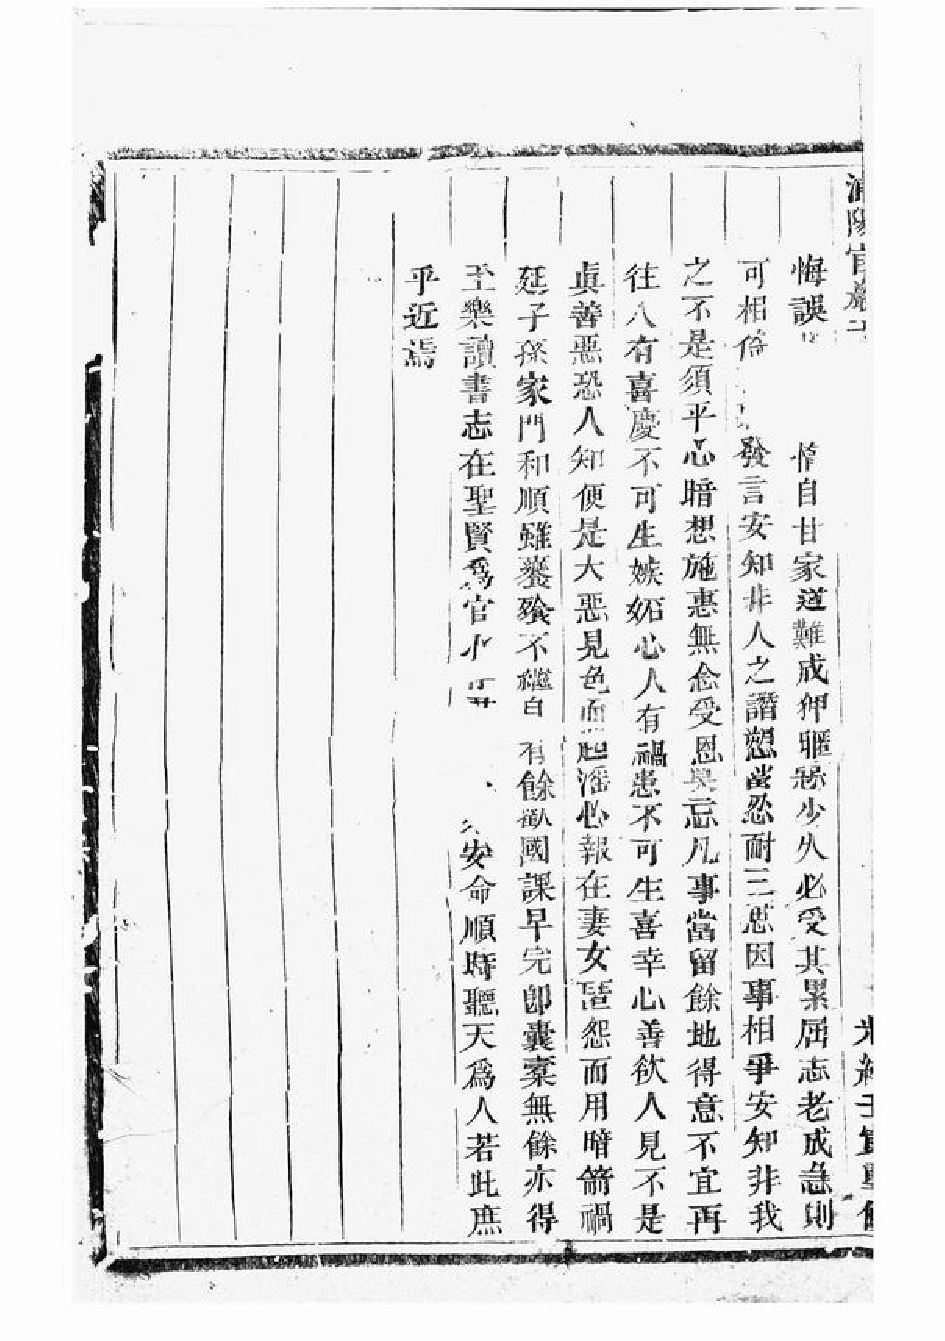 悔誤 惰自甘家道難成狎暱惡少久必受其累屈志老成急則
可相 發言安知非人之譖愬當忍耐三思因事相爭安知非我
之不是須平心暗想施惠無念受恩莫忘凡事當留餘地得意不宜再
往人有喜慶不可生嫉妬心人有禍患不可生喜幸心善欲人見不是
眞善惡恐人知便是大惡見色而起淫心報在妻女匿怨而用暗箭禍
延子孫家門和順雖饔飱不繼 有餘歡國課早完卽囊橐無餘亦得
至樂讀書志在聖賢爲官 安命順時聽天爲人若此庶
乎近焉